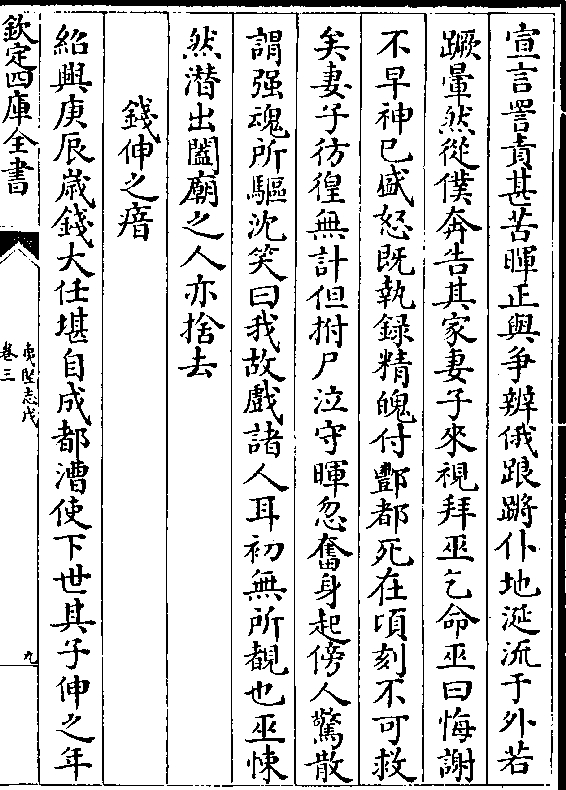 宣言詈責甚苦暉正與爭辨俄踉蹡仆地涎流于外若
蹶暈然從僕奔告其家妻子來視拜巫乞命巫曰悔謝
不早神已盛怒既執録精魄付酆都死在頃刻不可救
矣妻子彷徨無計但拊尸泣守暉忽奮身起傍人驚散
謂强魂所驅沈笑曰我故戲諸人耳初無所覩也巫悚
然潛出闔廟之人亦捨去
錢伸之瘖
紹興庚辰歲錢大任堪自成都漕使下世其子伸之年
欽定四庫全書
夷堅志戊
卷三
九